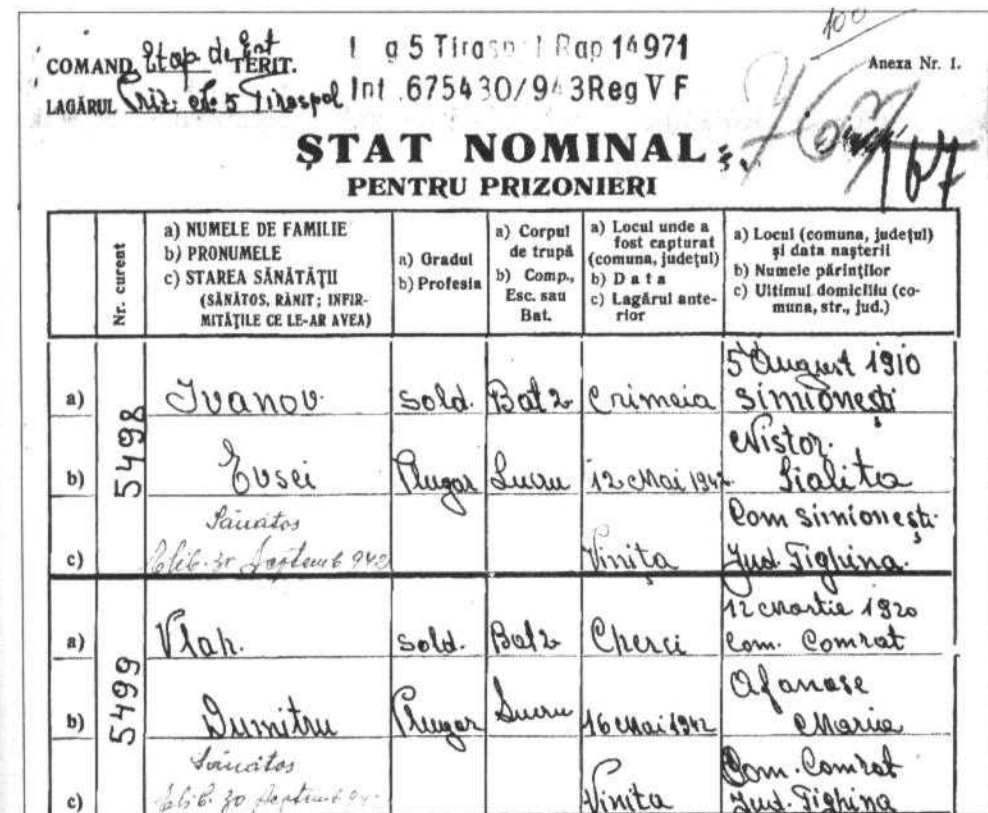 100
COMAND. Etap. de Est TERIT.
LAGĂRUL Priz. No. 5 Tiraspol
l g 5 Tirasp l Rap 14971
Int .675430/943Reg V F
Anexa Nr. 1.
ȘTAT NOMINAL
PENTRU PRIZONIERI
167
Nr. curent
a) NUMELE DE FAMILIE
b) PRONUMELE
c) STAREA SĂNĂTĂȚII
(SĂNĂTOS, RĂNIT; INFIR-
MITĂȚILE CE LE-AR AVEA)
a) Gradul
b) Profesia
a) Corpul
de trupă
b) Comp.,
Esc. sau
Bat.
a) Locul unde a
fost capturat
(comuna, județul)
b) Data
c) Lagărul ante-
rior
a) Locul (comuna, județul)
și data nașterii
b) Numele părinților
c) Ultimul domiciliu (co-
muna, str., jud.)
5498
a) Ivanov. sold. Bat 2 Crimeia
5 August 1910
Simionești
b) Evsei Plugar Lucru 12 Mai 1942
Nistor.
c) Sănătos
Elib. 30 Septemb 942
Vinița
Com Simionești.
Jud. Tighina.
5499
a) Vlah. sold. Bat 2 Cherci
12 Martie 1920
Com. Comrat
b) Dumitru Plugar Lucru 16 Mai 1942
Afanase
Maria
c) Sănătos
Elib. 30 Septemb
Vinița
Com. Comrat
Jud. Tighina